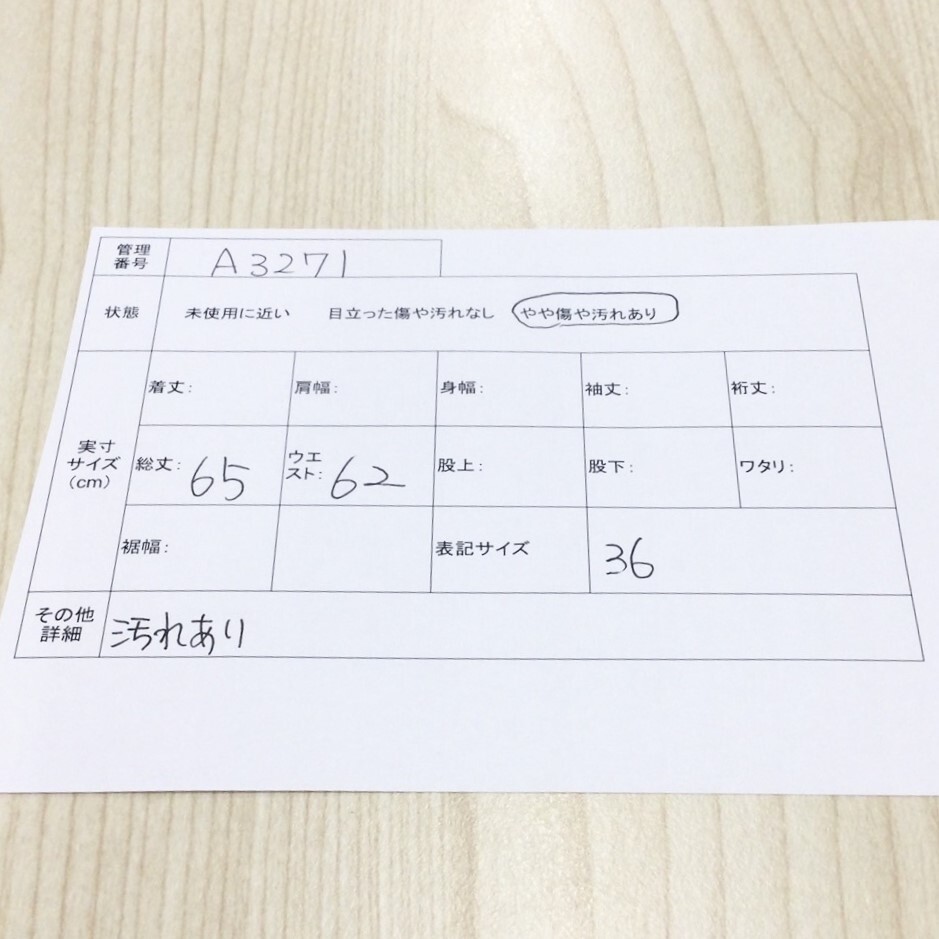 管理
番号 A3271
状態 未使用に近い 目立った傷や汚れなし やや傷や汚れあり
着丈: 肩幅: 身幅: 袖丈: 裄丈:
実寸
サイズ
(cm)
総丈: 65 ウエ
スト: 62 股上: 股下: ワタリ:
裾幅: 表記サイズ 36
その他
詳細 汚れあり